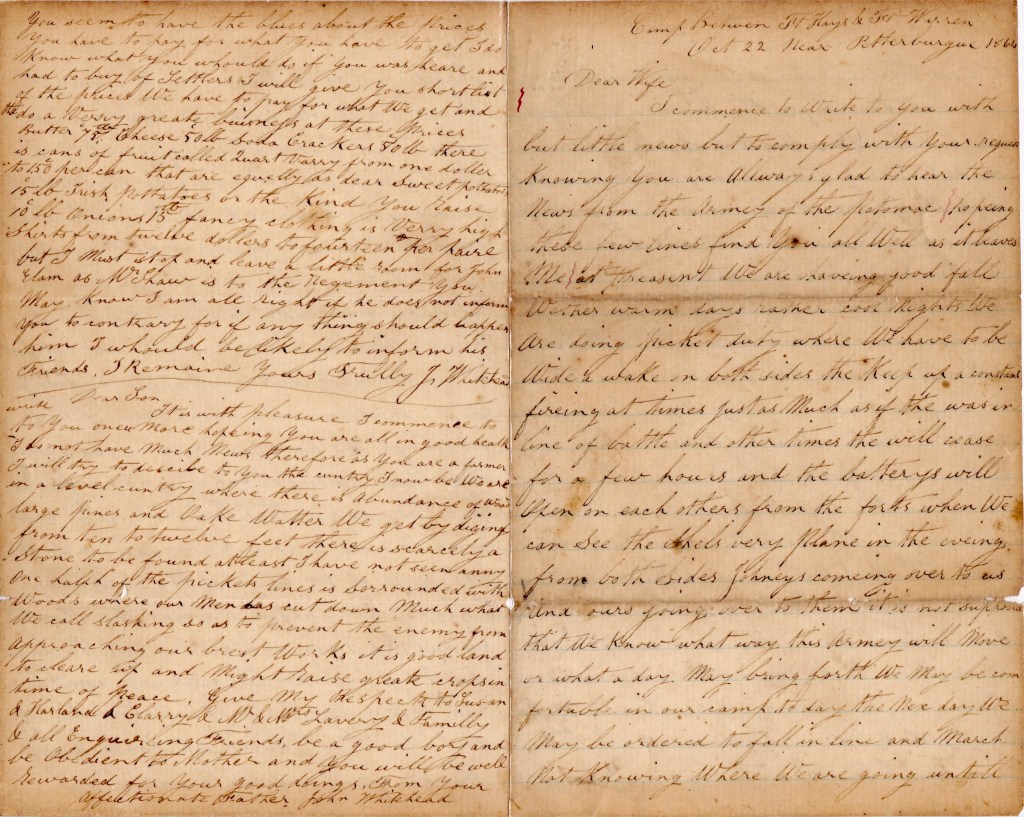 Camp Betwen Ft Hays & Ft Wirren
Oct 22 Near Petterburgue 1864
Dear Wife
I commence to Write to You with
but little news but to comply with Your request
Knowing You are Allways glad to hear the
News from the Armey of the potomac hopeing
these few lines find You all Well as it leaves
Me at preasent We are haveing good fall
Wether warm days rather cool Nights We
Are doing picket duty where We have to be
Wide a wake on both sides the Keep up a constant
fireing at times just as Much as if the was in
line of battle and other times the will cease
for a few hours and the batterys will
Open on each others from the forts when We
can See the shels very plane in the eveing
from both Sides Johneys comeing over to us
And ours going over to them it is not suppose
that We Know what way this Armey will Move
or what a day May bring forth We May be com
fortable in our camp to day the Nex day We
May be ordered to fall in line and March
Not Knowing Where We are going untill
You seem to have the blues about the Prices
You have to pay for what You have to get I do
Know what you whould do if you was heare and
had to buy of Settlers I will give You short list
of the prices We have to pay for what We get and
the do a Verry greate buisness at these Prices
Butter 75 cts Cheese 50 lb Soda Crackers 30 lb there
is cans of fruit called Quart Varry from one doller
to 150 per can that are equelly as dear Sweet pottatoes
15 lb Irish Pottatoes or the Kind You Raise
10 lb Onions 15 cts fancy clothing is Verry high
Shirts from twelve dollers to fourteen per paire
but I Must stop and leave a little room for John
Elam as Mr Shaw is to the Regement You
May Know I am all right if he does not inform
You to contrary for if any thing should happen
him I whould be likely to inform his
Friends, I Remaine Yours Trully J, Whitehead
Dear Son
It is with pleasure I commence to
write
to You onew More hopeing You are all in good health
I do not have Much News therefore as You are a farmer
I will try to descibe to You the cuntry I now be We are
in a level cuntry where there is Abundance of woods
large pines and Oake Watter We get by diging
from ten to twelve feet there is scarcely a
Stone to be found atleast I have not seen anny
One halph of the pickets lines is sorrounded with
Woods where our Men has cut down Much what
We call slashing so as to prevent the enemy from
Approaching our brest Works it is good land
to cleare up and Might raise greate crops in
time of Peace, Give My Respects to Susan
& Harland & Clarry & Mr & Mrs Lavery & Familly
& all Enquireing Friends, be a good boy and
be Obedient to Mother and You will be well
Rewarded for Your good doings, From Your
Affectionate Father John Whitehead